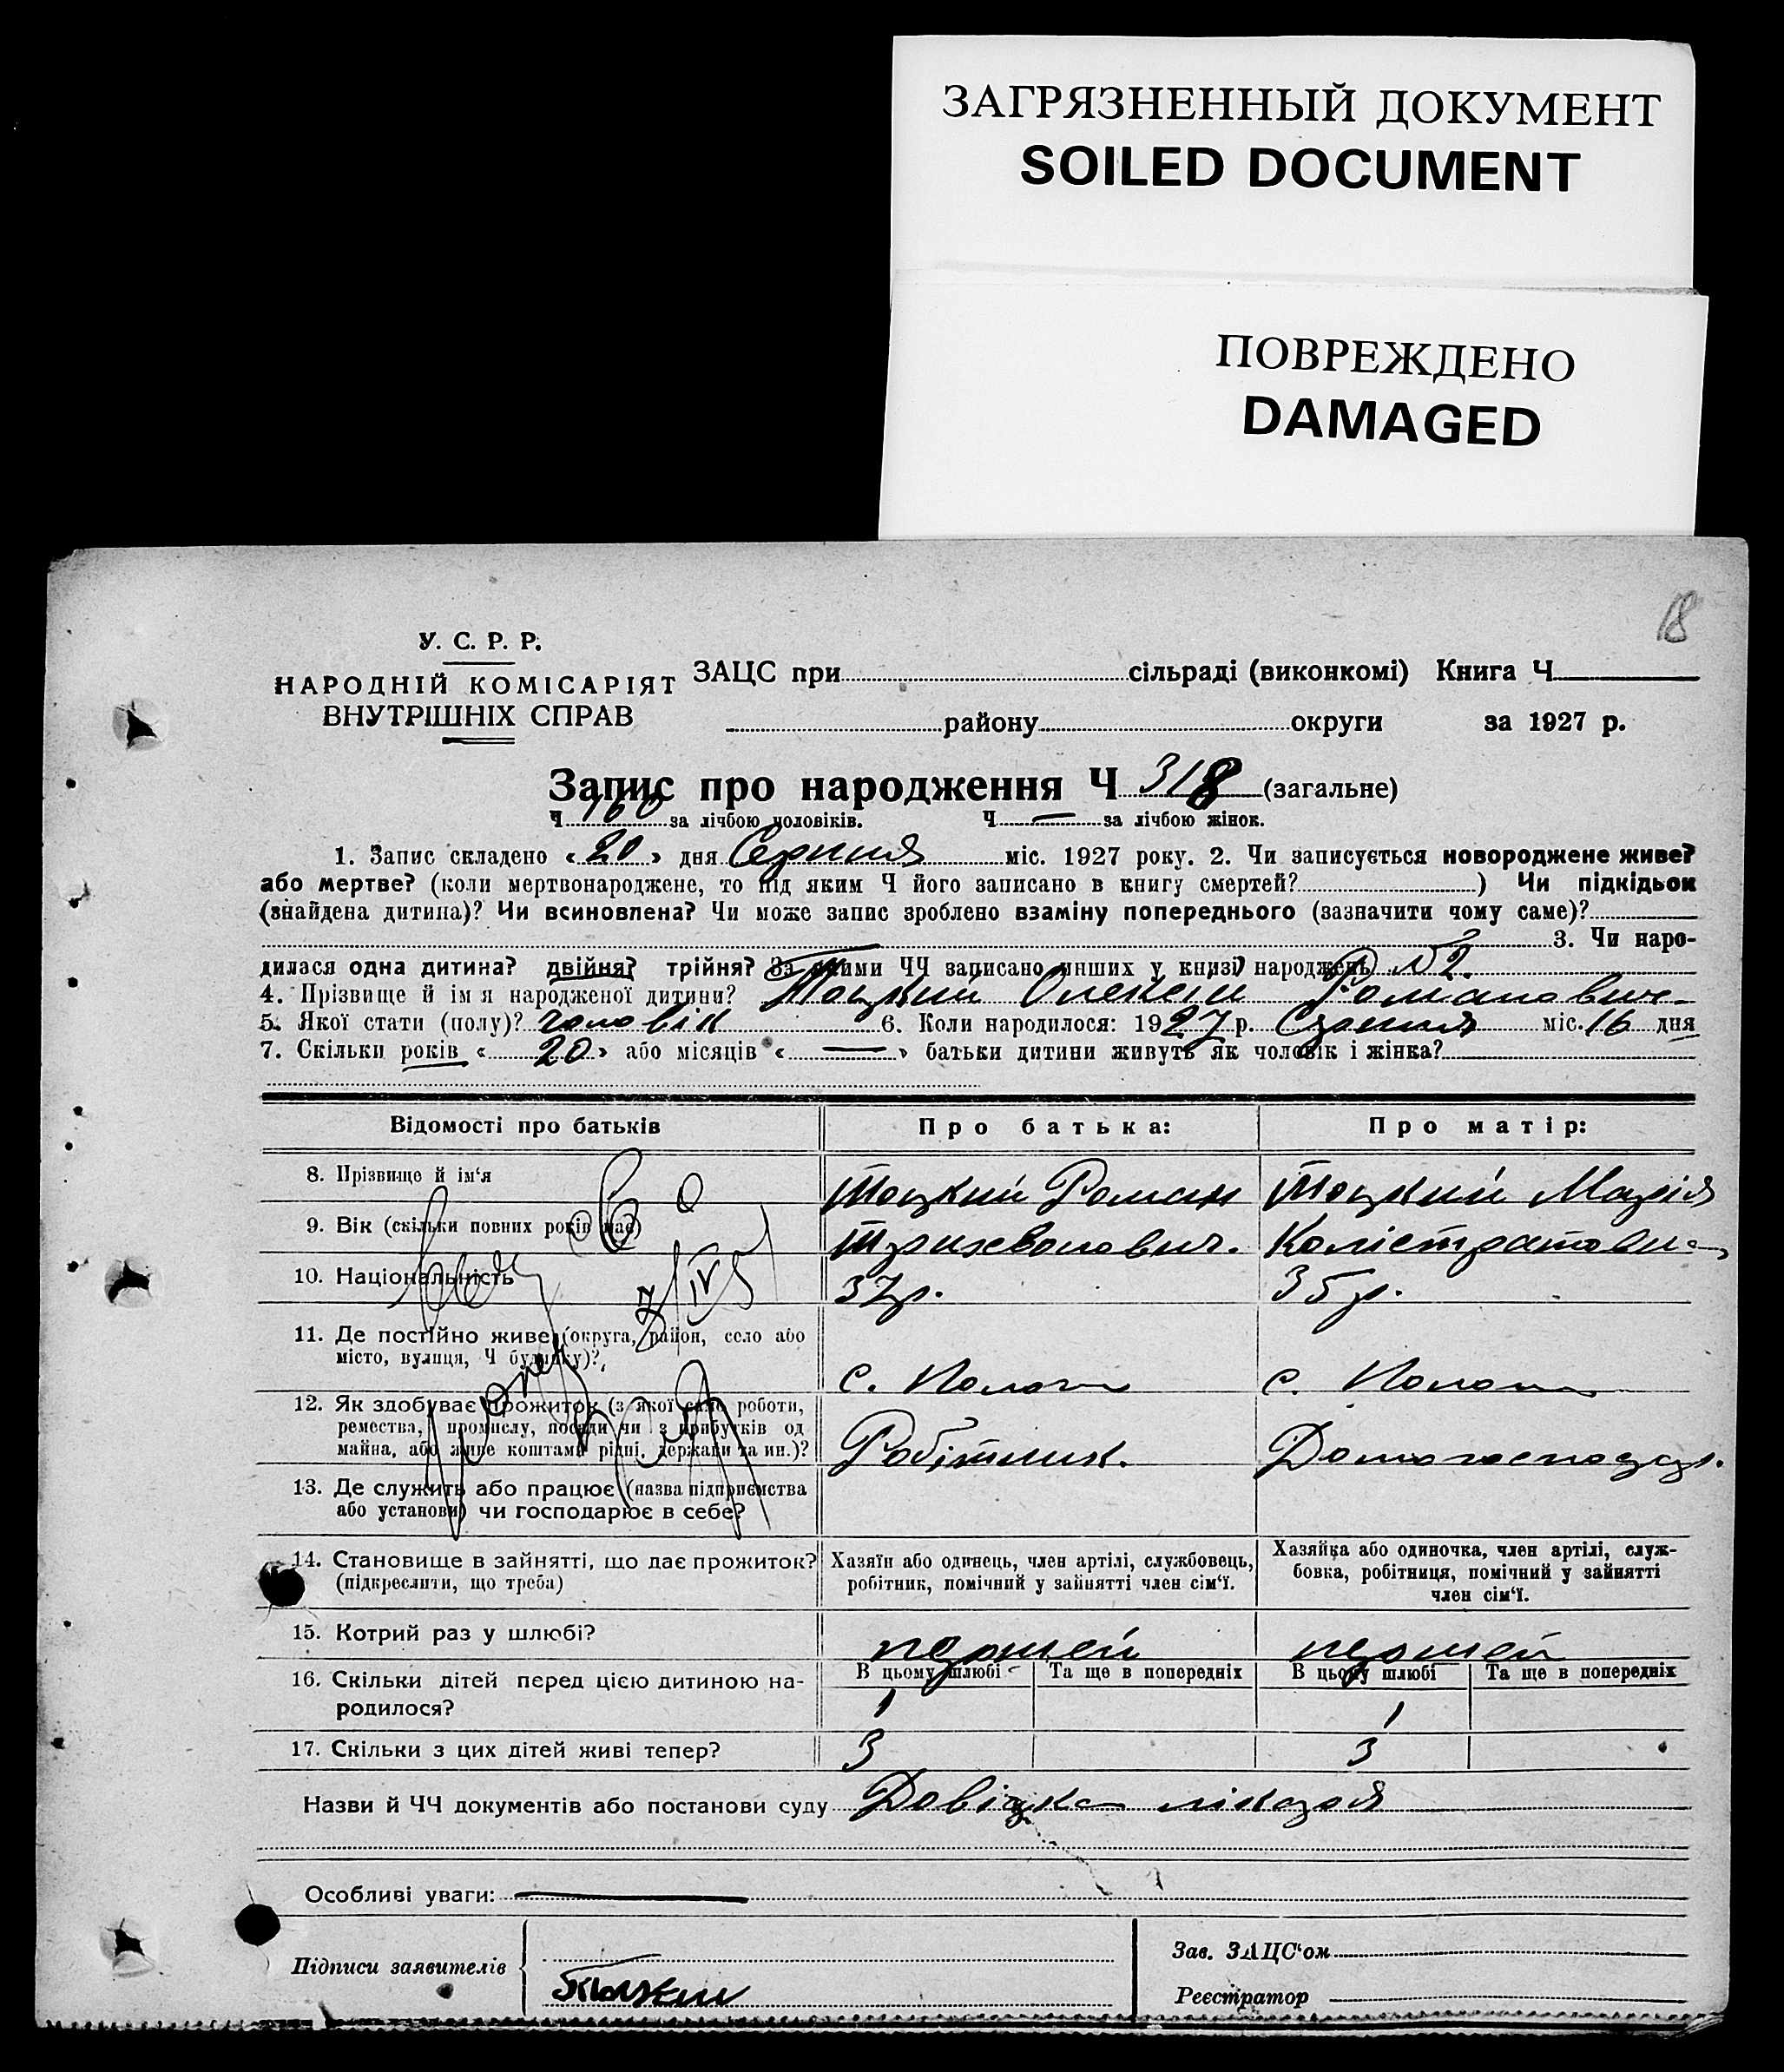 ЗАГРЯЗНЕННЫЙ ДОКУМЕНТ
SOILED DOCUMENT
ПОВРЕЖДЕНО
DAMAGED
18
У. С. Р. Р.
НАРОДНІЙ КОМІСАРІЯТ
ВНУТРІШНІХ СПРАВ
ЗАЦС при сільраді (виконкомі) Книга Ч
району округи за 1927 р.
Запис про народження Ч 318 (загальне)
Ч 160 за лічбою чоловіків. Ч — за лічбою жінок.
1. Запис складено «20» дня Серпня міс. 1927 року. 2. Чи записується новороджене живе?
або мертве? (коли мертвонароджене, то під яким Ч його записано в книгу смертей? ) Чи підкідьок
(знайдена дитина)? Чи всиновлена? Чи може запис зроблено взаміну попереднього (зазначити чому саме)?
3. Чи наро-
дилася одна дитина? двійня? трійня? За якими ЧЧ записано инших у книзі народжень №2.
4. Прізвище й ім я народженої дитини? Тоцкий Олексій Романович
5. Якої стати (полу)? чоловік 6. Коли народилося: 1927 р. Серпня міс. 16 дня
7. Скільки років «20» або місяців «—» батьки дитини живуть як чоловік і жінка?
Відомості про батьків Про батька: Про матір:
8. Прізвище й ім'я Тоцкий Роман Тоцкий Марія
9. Вік (скільки повних років має) Трихвонович. Калістратовн
10. Національність 37р. 35р.
7/IV 51
11. Де постійно живе (округа, район, село або
місто, вулиця, Ч будинку)? с. Пологи с. Пологи
12. Як здобуває прожиток (з якої саме роботи,
ремества, промислу, посади чи з прибутків од
майна, або живе коштами рідні, держави та ин.)? Робітник. Домогосподар.
13. Де служить або працює (назва підприємства
або установи) чи господарює в себе?
14. Становище в зайнятті, що дає прожиток?
(підкреслити, що треба)
Хазяїн або одинець, член артілі, службовець,
робітник, помічний у зайнятті член сім'ї.
Хазяйка або одиночка, член артілі, служ-
бовка, робітниця, помічний у зайнятті
член сім'ї.
15. Котрий раз у шлюбі? первей первей
В цьому шлюбі Та ще в попередніх В цьому шлюбі Та ще в попередніх
16. Скільки дітей перед цією дитиною на-
родилося? 1 1
17. Скільки з цих дітей живі тепер? 3 3
Назви й ЧЧ документів або постанови суду Довідка лікаря
Особливі уваги:
Підписи заявителів
Зав. ЗАЦС'ом
Реєстратор